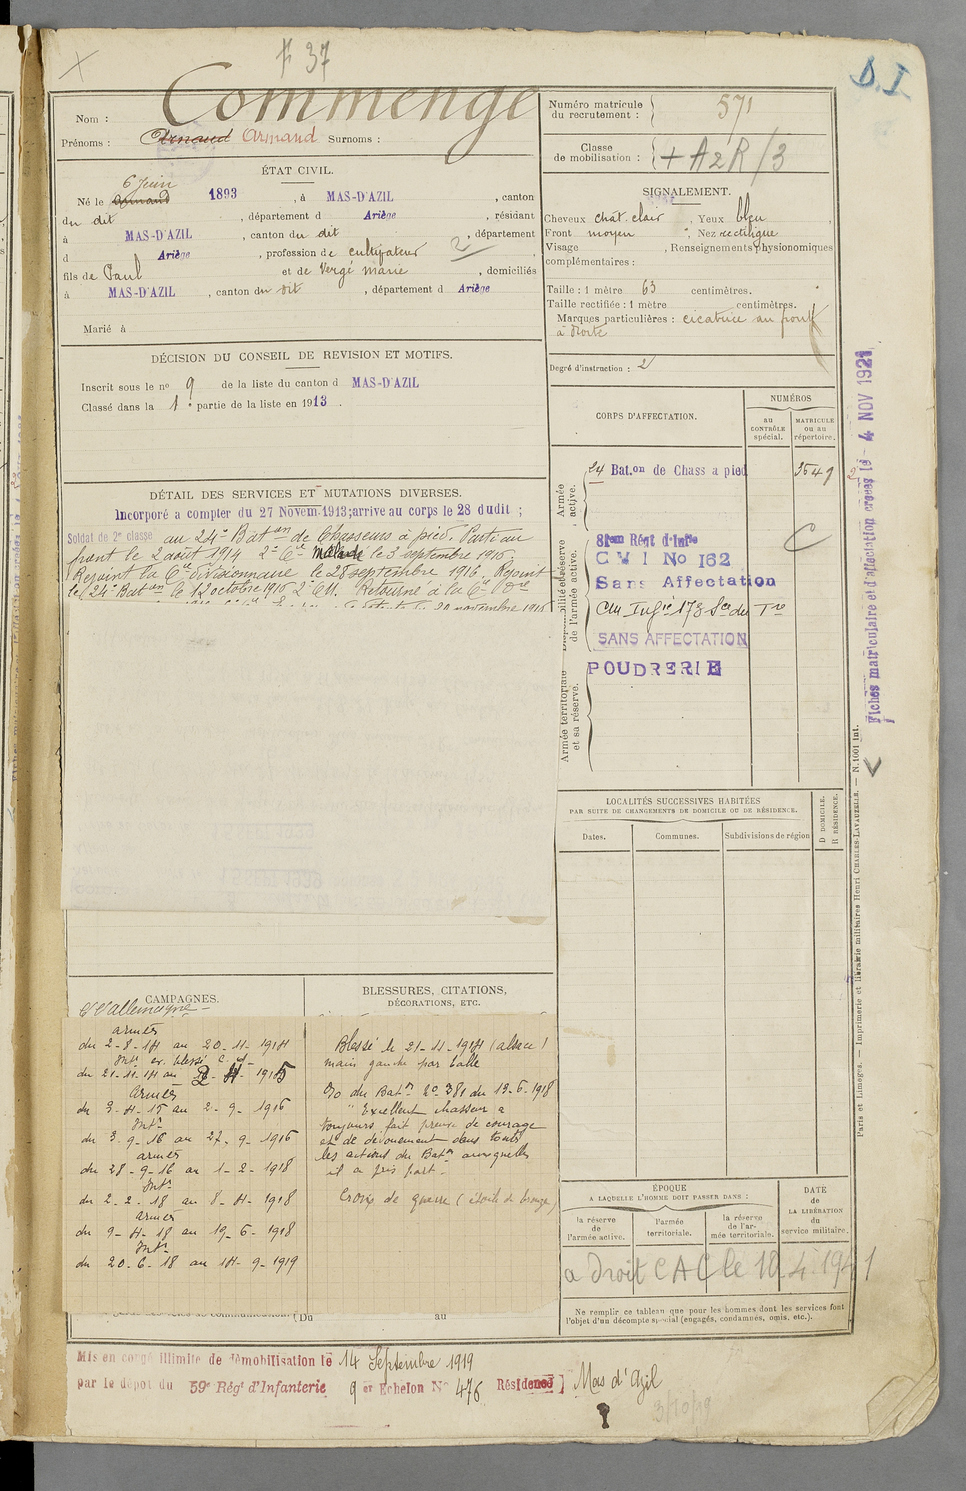 F 37
D.I
Nom : Commenge
Prénoms : Arnaud Armand Surnoms :
Numéro matricule du recrutement : 571
Classe de mobilisation : + A2R/3
ÉTAT CIVIL.
6 Juin
Né le Armand 1893, à MAS-D'AZIL, canton
du dit, département d Ariège, résidant
à MAS-D'AZIL, canton du dit, département
d Ariège, profession de cultivateur 2
fils de Paul et de Vergé Marie, domiciliés
à MAS-D'AZIL, canton du dit, département d Ariège
Marié à
SIGNALEMENT.
Cheveux chat. clair, Yeux bleu,
Front moyen, Nez rectiligne
Visage, Renseignements physionomiques
complémentaires :
Taille : 1 mètre 63 centimètres.
Taille rectifiée : 1 mètre centimètres.
Marques particulières : cicatrice au front
à droite
Degré d'instruction : 2
DÉCISION DU CONSEIL DE REVISION ET MOTIFS.
Inscrit sous le no 9 de la liste du canton d MAS-D'AZIL
Classé dans la 1e partie de la liste en 1913.
DÉTAIL DES SERVICES ET MUTATIONS DIVERSES.
Incorporé a compter du 27 Novem. 1913; arrive au corps le 28 dudit ;
Soldat de 2e classe au 24e Baton de Chasseurs à pied. Parti au
front le 2 août 1914 2e Cie Malade le 3 septembre 1916.
Rejoint la Cie divisionnaire le 28 septembre 1916. Rejoint
le 24e Baton le 12 octobre 1916 2e CM. Retourné à la Cie Dre
20 novembre 1916
CORPS D'AFFECTATION.
NUMÉROS
au CONTRÔLE spécial.
MATRICULE ou au répertoire.
Armée active.
24 Bat.on de Chass a pied
3549
Disponibilité et réserve de l'armée active.
81em Régt d'Infie
C
C M I No 162
Sans Affectation
SANS AFFECTATION
Armée territoriale et sa réserve.
POUDRERIE
LOCALITÉS SUCCESSIVES HABITÉES
PAR SUITE DE CHANGEMENTS DE DOMICILE OU DE RÉSIDENCE.
Dates.
Communes.
Subdivisions de région
D DOMICILE.
R RÉSIDENCE.
CAMPAGNES.
Ct l'allemagne
armées
du 2-8-14 au 20-11-1914
Intr ex. blessé C. d
du 21-11-14 au 2-4-1915
Armées
du 3-4-15 au 2-9-1916
Intr
du 3-9-16 au 27-9-1916
armées
du 28-9-16 au 1-2-1918
Intr
du 2-2-18 au 8-4-1918
armées
du 9-4-18 au 19-6-1918
Intr
du 20-6-18 au 14-9-1919
BLESSURES, CITATIONS,
DÉCORATIONS, ETC.
Blessé le 21-11-1914 (alsace)
main gauche par balle
Oo du Batn no 381 du 13-6-1918
" Excellent chasseur a
toujours fait preuve de courage
et de dévouement dans toutes
les actions du Batn auxquelles
il a pris part.
Croix de guerre (étoile de bronze)
Du au
ÉPOQUE
A LAQUELLE L'HOMME DOIT PASSER DANS :
la réserve de l'armée active.
l'armée territoriale.
la réserve de l'armée territoriale.
DATE de LA LIBÉRATION du service militaire.
a droit C A C le 10.4.1941
Ne remplir ce tableau que pour les hommes dont les services font
l'objet d'un décompte spécial (engagés, condamnés, omis, etc.).
Mis en congé illimité de démobilisation le 14 Septembre 1919
par le dépôt du 59e Régt d'Infanterie 9 er Echelon No 476 Résidence] Mas d'Azil
3/10/19
Fiches matriculaire et d'affectation créées le 4 NOV 1921
Paris et Limoges. — Imprimerie et librairie militaires Henri CHARLES-LAVAUZELLE. — N. 1001 int.